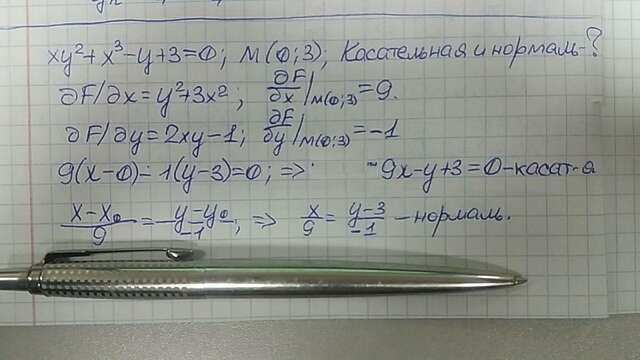 xy²+x³-y+3=0; M(0;3); Касательная и нормаль-?
∂F/∂x=y²+3x²; ∂F/∂x|M(0;3)=9.
∂F/∂y=2xy-1; ∂F/∂y|M(0;3)=-1
9(x-0)-1(y-3)=0; => 9x-y+3=0-касат-я
(x-x₀)/9=(y-y₀)/-1; => x/9=(y-3)/-1 -нормаль.